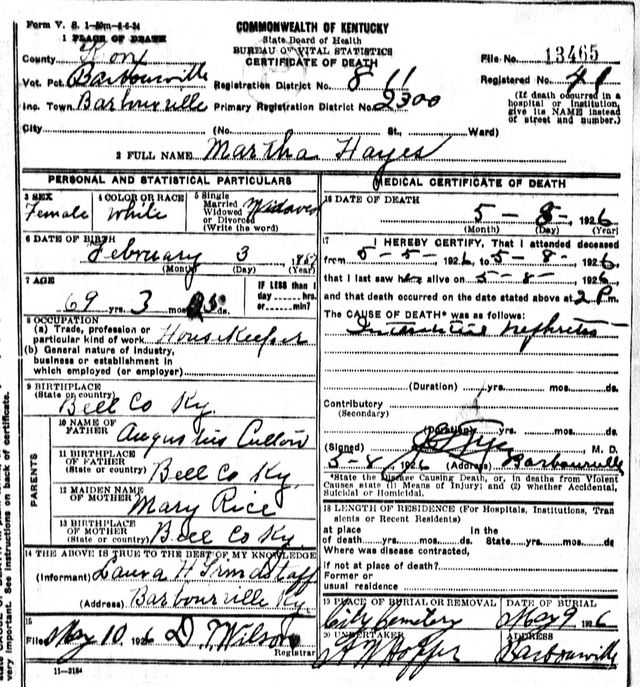 Form V. S. 1-50m-8-6-24
COMMONWEALTH OF KENTUCKY
State Board of Health
BUREAU OF VITAL STATISTICS
CERTIFICATE OF DEATH
1 PLACE OF DEATH
County Knox
Vot. Pct. Barbourville
Inc. Town Barbourville
City
Registration District No. 811
Primary Registration District No. 2300
(No. St., Ward)
File No. 13465
Registered No. 41
(If death occurred in a
hospital or institution,
give its NAME instead
of street and number.)
2 FULL NAME Martha Hayes
PERSONAL AND STATISTICAL PARTICULARS
3 SEX
Female
4 COLOR OR RACE
White
5 Single
Married
Widowed
or Divorced
(Write the word)
Widowed
6 DATE OF BIRTH
February 3 1857
(Month) (Day) (Year)
7 AGE
69 yrs. 3 mos. ds.
IF LESS than 1
day hrs.
or min?
8 OCCUPATION
(a) Trade, profession or
particular kind of work Housekeeper
(b) General nature of industry,
business or establishment in
which employed (or employer)
9 BIRTHPLACE
(State or country)
Bell Co Ky.
PARENTS
10 NAME OF
FATHER
Augustus
11 BIRTHPLACE
OF FATHER
(State or country)
Bell Co Ky.
12 MAIDEN NAME
OF MOTHER
Mary Rice
13 BIRTHPLACE
OF MOTHER
(State or country)
Bell Co Ky.
14 THE ABOVE IS TRUE TO THE BEST OF MY KNOWLEDGE
(Informant) Laura H Grindstaff
(Address) Barbourville Ky.
15
Filed May 10 1926 D. T. Wilson
Registrar
11-3184
MEDICAL CERTIFICATE OF DEATH
16 DATE OF DEATH
5 - 8 - 1926
(Month) (Day) (Year)
17 I HEREBY CERTIFY, That I attended deceased
from 5-5- 1926, to 5-8-, 1926,
that I last saw her alive on 5-8-, 1926
and that death occurred on the date stated above at 2 P.m.
The CAUSE OF DEATH* was as follows:
nephritis
(Duration) yrs. mos. ds.
Contributory
(Secondary)
(Duration) yrs. mos. ds.
(Signed) M. D.
5-8, 1926 (Address) Barbourville
*State the Disease Causing Death, or, in deaths from Violent
Causes state (1) Means of Injury; and (2) whether Accidental,
Suicidal or Homicidal.
18 LENGTH OF RESIDENCE (For Hospitals, Institutions, Tran
sients or Recent Residents)
at place In the
of death yrs. mos. ds. State yrs. mos. ds.
Where was disease contracted,
if not at place of death?
Former or
usual residence
19 PLACE OF BURIAL OR REMOVAL
City Cemetery
DATE OF BURIAL
May 9 1926
20 UNDERTAKER
Hopper
ADDRESS
Barbourville
very important. See instructions on back of certificate.